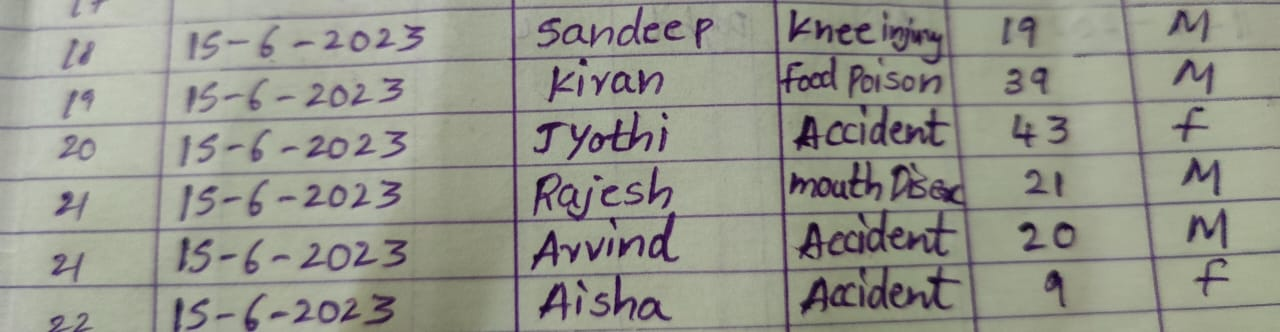 17
18 15-6-2023 Sandeep Knee injury 19 M
19 15-6-2023 Kiran food Poison 39 M
20 15-6-2023 Jyothi Accident 43 f
21 15-6-2023 Rajesh mouth 21 M
21 15-6-2023 Arvind Accident 20 M
22 15-6-2023 Aisha Accident 9 f